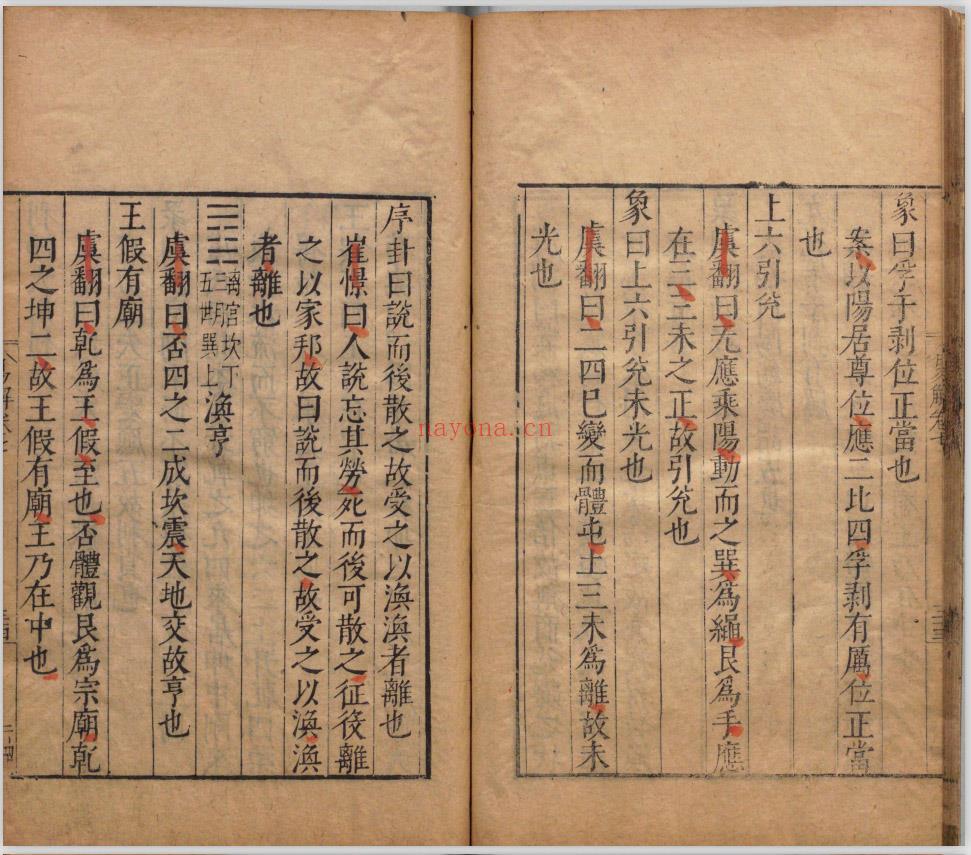 象曰孚于剥位正當也
案以陽居尊位應二比四孚剥有厲位正當
也
上六引兊
虞翻曰无應乘陽動而之巽爲繩艮爲手應
在三三未之正故引兊也
象曰上六引兊未光也
虞翻曰二四已變而體屯上三未爲離故未
光也
序卦曰說而後散之故受之以渙渙者離也
崔憬曰人說忘其勞死而後可散之征役離
之以家邦故曰說而後散之故受之以渙渙
者離也
離宫坎下
三明
五世巽上
渙亨
虞翻曰否四之二成坎震天地交故亨也
王假有廟
虞翻曰乾爲王假至也否體觀艮爲宗廟乾
四之坤二故王假有廟王乃在中也
nayona.cn